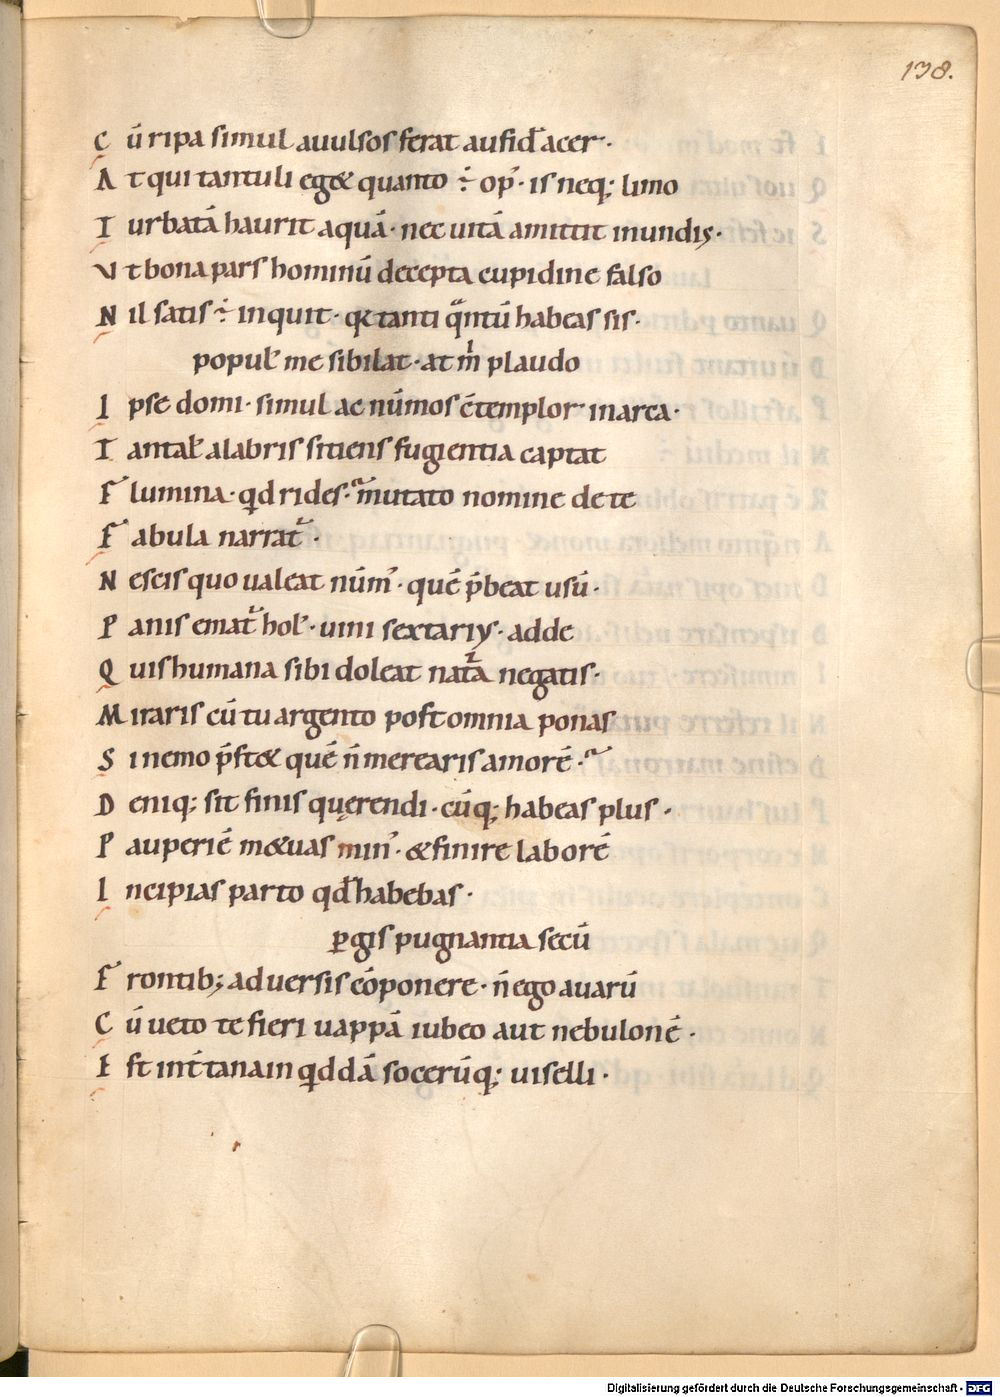 138.
C ū ripa simul auulsos ferat aufid᷒ acer·
A t qui tantuli eg& quanto ÷ op᷒· is neq; limo
T urbatā haurit aquā· nec uitā amittit inundis·
V t bona pars hominū decepta cupidine falso
N il satis ÷ inquit· q̇a tanti qͣntū habeas sis·
popul᷒ me sibilat· at m̍ plaudo
I pse domi· simul ac nūmos c̄templor in arca·
T antal᷒ a labris sitiens fugientia captat
F lumina· qd rides· mutato nomine de te
F abula narrat᷑·
N escis quo ualeat nūm᷒· quē p̄beat usū·
P anis emat᷑ hol᷒· uini sextarius· adde
Q uis humana sibi doleat natͣ᷑ā negatis·
M iraris cū tu argento post omnia ponas
S i nemo p̄st& quē n̄ merearis amorē·
D eniq; sit finis quęrendi· cūq; habeas plus·
P auperiē m&uas min᷒· & finire laborē
I ncipias parto qđ habebas·
ꝑgis pugnantia secū
F rontib; aduersis cōponere· n̄ ego auarū
C ū ueto te fieri uappā iubeo aut nebulonē·
E st int̄ tanain qddā socerūq; uiselli·
Digitalisierung gefördert durch die Deutsche Forschungsgemeinschaft - DFG